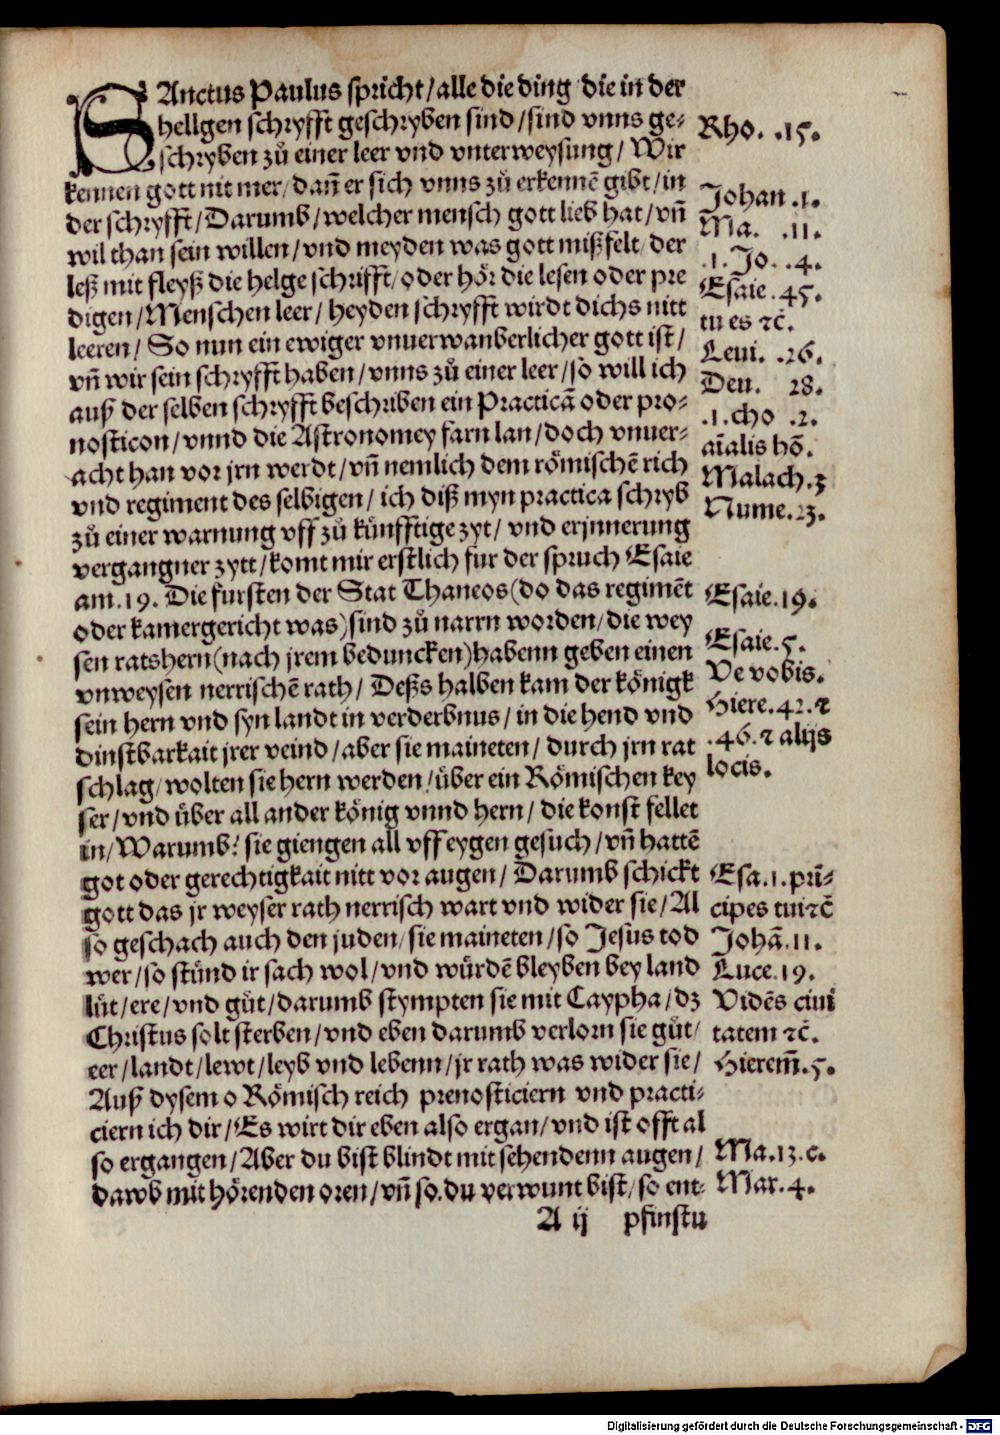 SAnctus Paulus spricht/alle die ding die in der
hellgen schryfft geschryben sind/sind vnns ge⸗
schryben zů einer leer vnd vnterweysung/ Wir
kennen gott nit mer/dañ er sich vnns zů erkennē gibt/in
der schryfft/Darumb/welcher mensch gott lieb hat/vñ
wil than sein willen/vnd meyden was gott mißfelt/der
leß mit fleyß die helge schrifft/oder hör die lesen oder pre
digen/Menschen leer/heyden schryfft wirdt dichs nitt
leeren/ So nun ein ewiger vnuerwanberlicher gott ist/
vñ wir sein schryfft haben/vnns zů einer leer/so will ich
auß der selben schryfft beschriben ein Practicā oder pro⸗
nosticon/vnnd die Astronomey farn lan/doch vnuer⸗
acht han vor jrn werdt/vñ nemlich dem römischē rich
vnd regiment des selbigen/ich diß myn practica schryb
zů einer warnung vff zů künfftige zyt/vnd erjnnerung
vergangner zytt/komt mir erstlich fur der spruch Esaie
am.19. Die fursten der Stat Thaneos(do das regimēt
oder kamergericht was)sind zů narrn worden/die wey
sen ratshern(nach jrem beduncken)habenn geben einen
vnweysen nerrischē rath/ Deßs halben kam der königk
sein hern vnd syn landt in verderbnus/in die hend vnd
dinstbarkait jrer veind/aber sie maineten/durch jrn rat
schlag/wolten sie hern werden/über ein Römischen key
ser/vnd über all ander könig vnnd hern/die konst fellet
in/Warumb? sie giengen all vff eygen gesuch/vñ hattē
got oder gerechtigkait nitt vor augen/ Darumb schickt
gott das jr weyser rath nerrisch wart vnd wider sie/Al
so geschach auch den juden/sie maineten/so Jesus tod
wer/so stünd ir sach wol/vnd würdē bleyben bey land
lüt/ere/vnd gůt/darumb stympten sie mit Caypha/dz
Christus solt sterben/vnd eben darumb verlorn sie gůt/
eer/landt/lewt/leyb vnd lebenn/jr rath was wider sie/
Auß dysem o Römisch reich prenosticiern vnd practi⸗
ciern ich dir/Es wirt dir eben also ergan/vnd ist offt al
so ergangen/Aber du bist blindt mit sehendenn augen/
dawb mit hörenden oren/vñ so.du verwunt bist/so ent⸗
A ij pfinstu
Rho. .15.
Johan .1.
Ma. .11.
.1. Jo. .4.
Esaie .45.
tu es ⁊c̄.
Leui. .26.
Deu. 28.
.1.cho .2.
aīalis hō.
Malach.3
Nume.23.
Esaie.19.
Esaie.5.
Ve vobis.
Hiere.42.⁊
.46.⁊ alijs
locis.
Esa.1.prīn⸗
cipes tui⁊c̄
Johā.11.
Luce.19.
Vidēs ciui
tatem ⁊c̄.
Hierem̄.5.
Ma.13.c.
Mar.4.
Digitalisierung gefördert durch die Deutsche Forschungsgemeinschaft - DFG